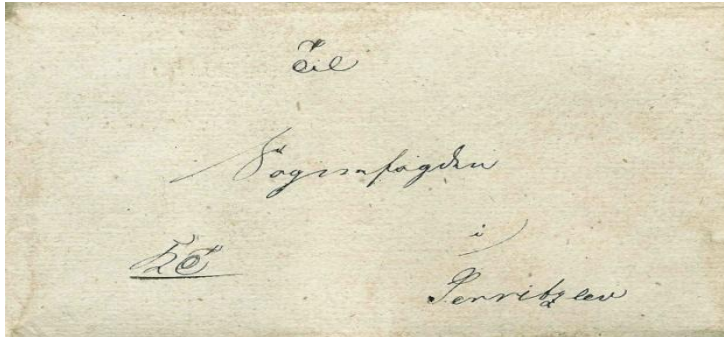 Til
Sognefogden
i
Serritzlev
K.T.